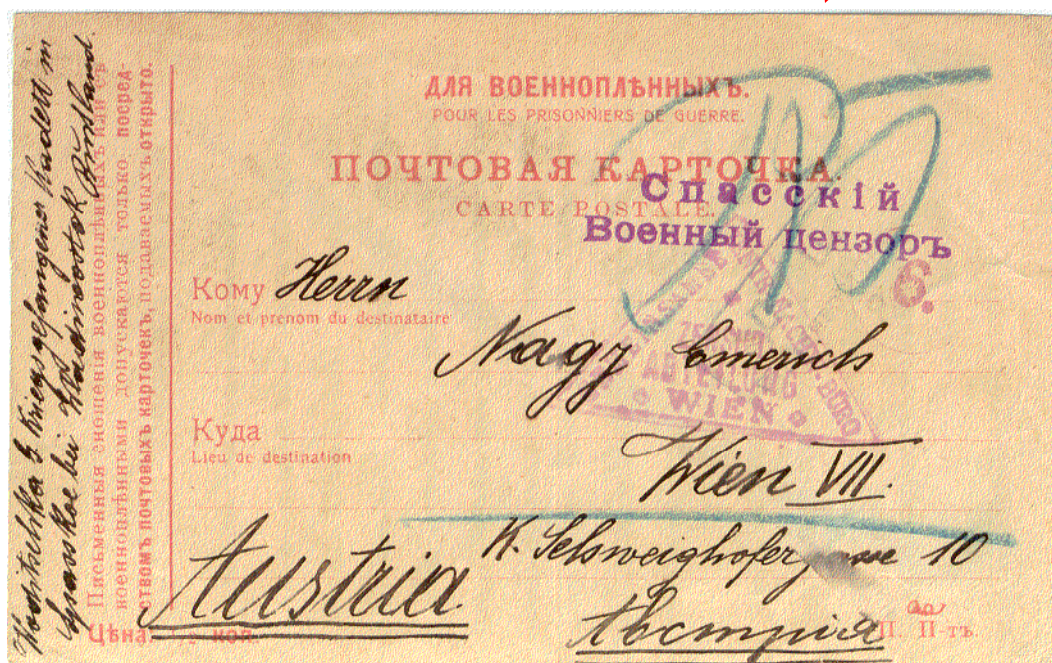 ДЛЯ ВОЕННОПЛѢННЫХЪ.
POUR LES PRISONNIERS DE GUERRE.
ПОЧТОВАЯ КАРТОЧКА.
CARTE POSTALE.
Спасскій
Военный цензоръ
6.
Кому Herrn
Nom et prenom du destinataire
Nagy Emerich
ABTEILUNG
WIEN
Куда
Lieu de destination
Wien VII.
10
Austria
Австрія
Цѣна коп.
П. П-тъ.
Письменныя сношенія военноплѣнныхъ или съ
военноплѣнными допускаются только посред-
ствомъ почтовыхъ карточекъ, подаваемыхъ открыто.
G. Kriegsgefangener Kadett in
Spasskoe bei Wladiwostok Rußland.